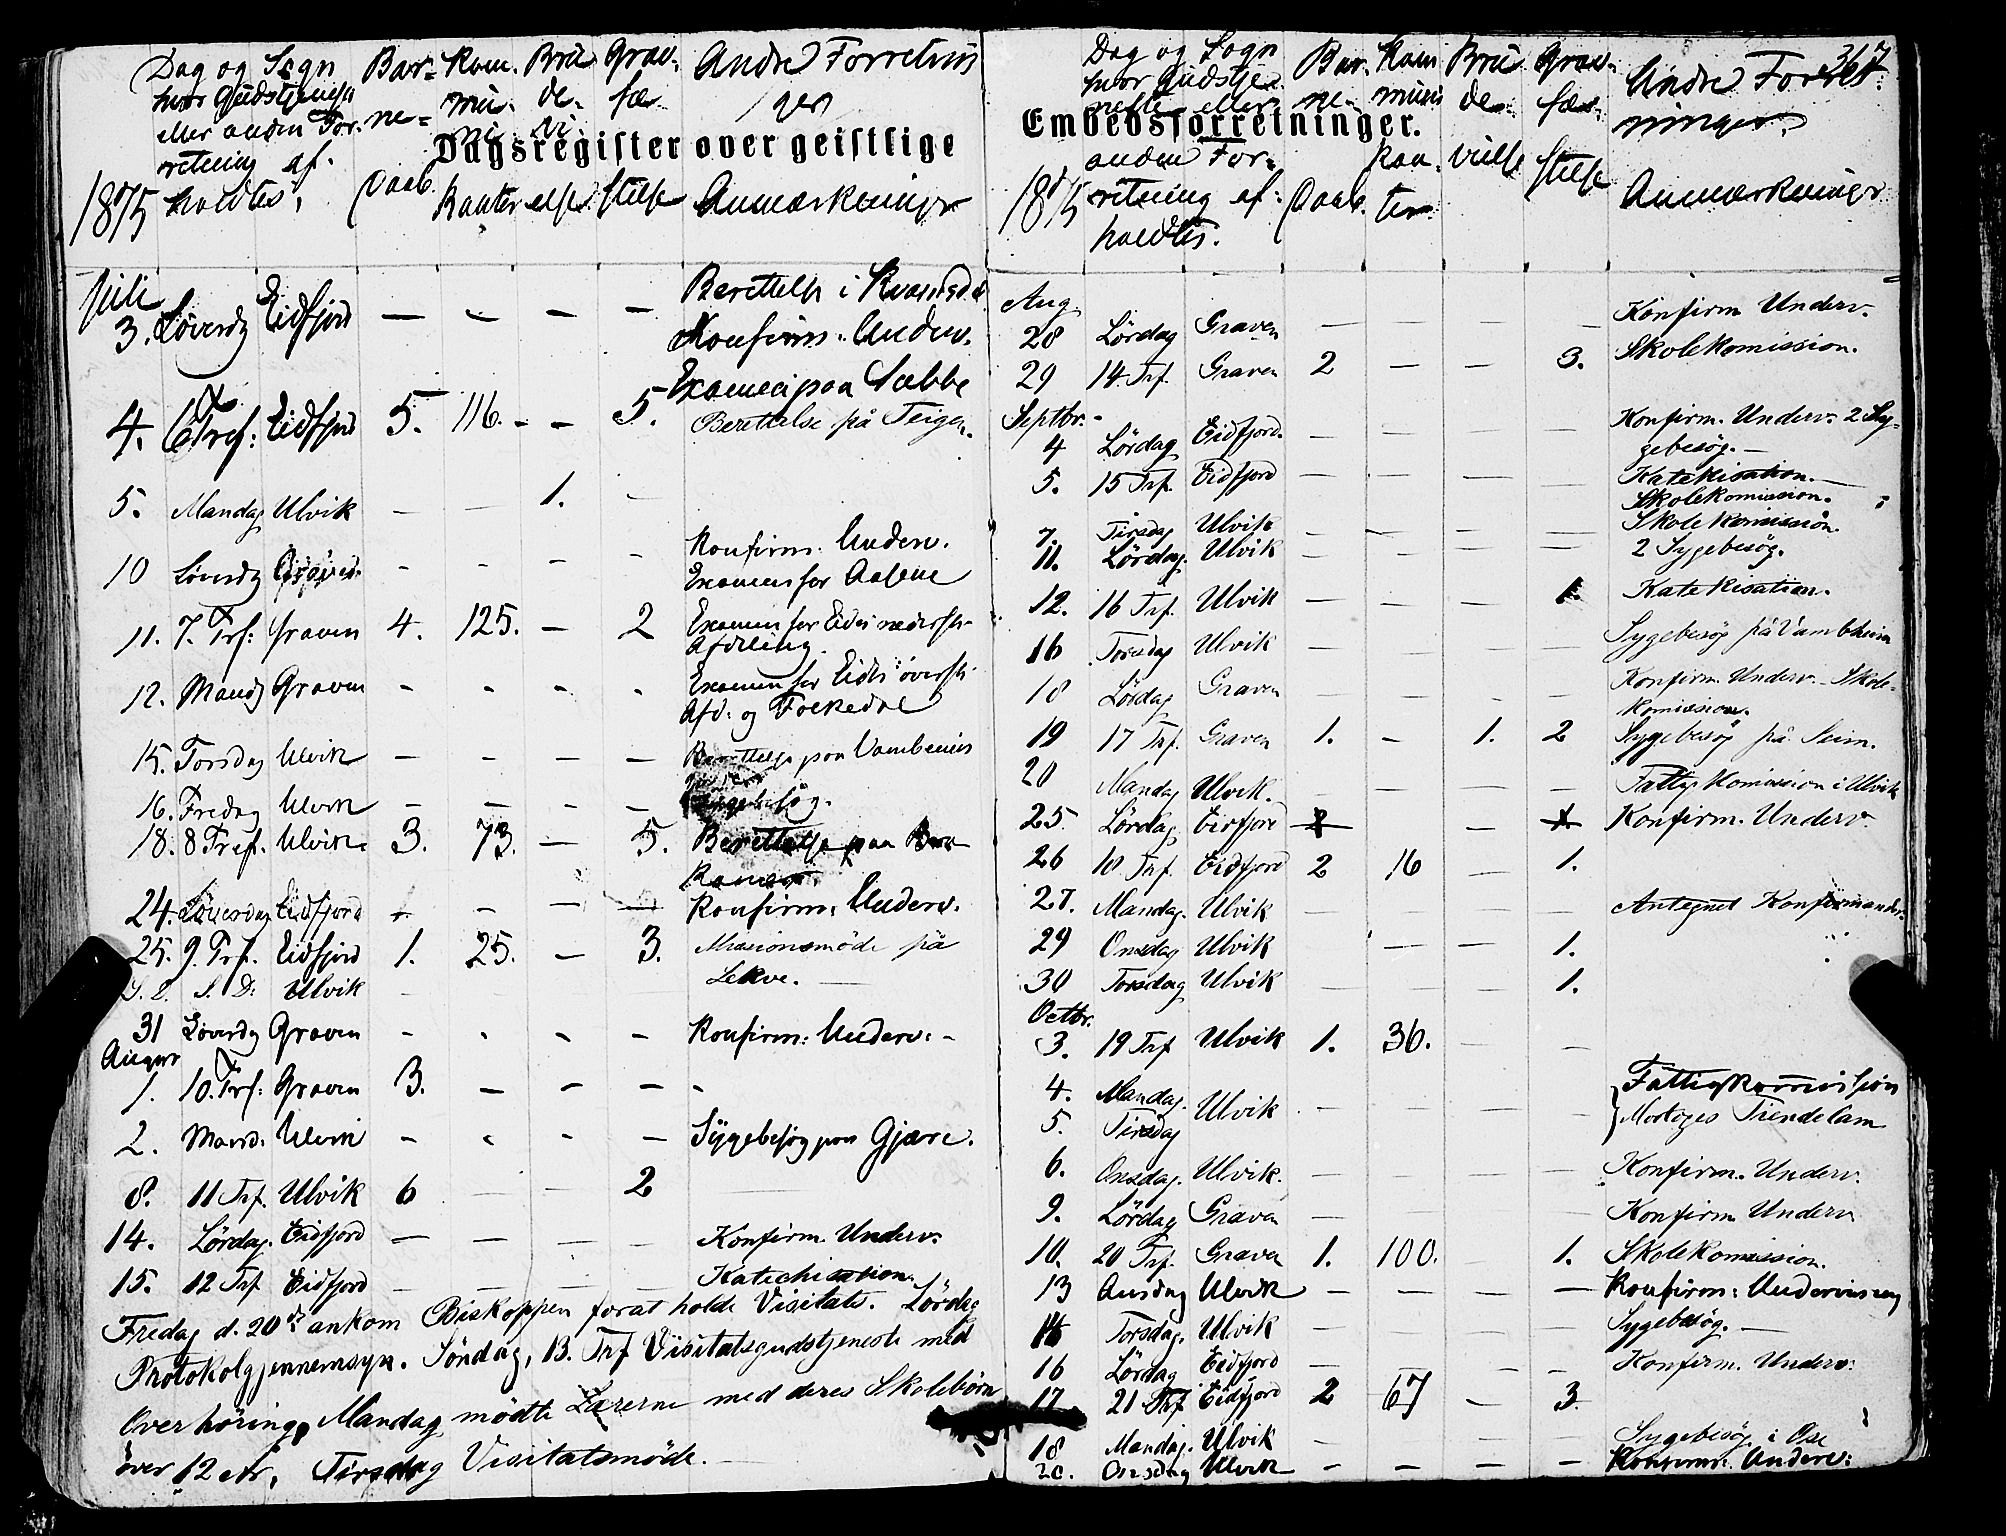 Dagsregister over geistlige
Embedsforretninger.
367
1875
Dag og Sogn
hvor Gudstjeneste
eller anden For-
retning af-
holdtes.
Bar-
ne-
Daab.
Kom-
mu-
ni-
kanter
Bru
de-
vi-
else
Grav-
fæ-
stelse
Andre Forretnin
ger
Anmærkninger
Juli
3. Löverdg Eidfjord — — — — Berettelse i
Konfirm. Underv.
Examen paa Sæbbe
4. 6 Tref: Eidfjord 5. 116. - - 5. Berettelse på Teigen.
5. Mandag Ulvik — — 1. —
10 Löverdg - - — - Konfirm. Underv.
Examen for
11. 7. Trf: Graven 4. 125. — 2 Examen for Eides nederste
Afdeling.
12. Mandg Graven - - - - Examen for Eides överste
Afd. og Folkedal
15. Torsdag Ulvik — — — — Berettelse paa Vambheim
16. Fredag Ulvik — — — — Sygebesög.
18. 8 Tref. Ulvik. 3. 73. — 5. Berettelse paa
24. Löverdag Eidfjord — — — Konfirm. Underv.
25. 9. Trf. Eidfjord 1. 25. — 3. Missionsmöde på
S. D. S. D. Ulvik — — Lekve. —
31 Löverdg Graven - - - - Konfirm. Underv. -
August
1. 10. Trf: Graven 3. — - — -
2. Mand. Ulvik - - - — Sygebesög paa Gjære.
8. 11 Trf. Ulvik 6 — — 2 —
14. Lördag. Eidfjord — — — — Konfirm. Underv.
15. 12 Trf Eidfjord — — — — Katechisation.
Fredag d. 20de ankom Biskoppen forat holde Visitats. Lördag
Protokolgjennemsyn. Söndag, 13. Trf Visitatsgudstjeneste med
Overhöring, Mandag mödte Lærerne med deres Skolebörn
över 12 År, Tirsdag Visitatsmöde. —
1875
Dag og Sogn
hvor Gudstje-
neste eller
anden For-
retning af-
holdtes.
Bar-
ne-
Daab.
Kom
muni
kan-
ter
Bru
de-
vielse
Grav-
fæ-
stelse
Andre Forret-
ninger.
Anmærkninger
Aug.
28 Lördag Graven — — — — Konfirm. Underv.
29 14 Trf. Graven 2 — — 3. Skolekomission.
Septbr. -
4 Lördag Eidfjord. — — — — Konfirm. Underv. 2 Sy-
gebesög. —
5. 15 Trf. Eidfjord — — — — Katekisation. —
Skolekomission.
7. Tirsdag Ulvik — — — — Skolekomission.
11. Lördag. Ulvik — — — — 2 Sygebesög.
12. 16 Trf. Ulvik — — — 1 Katekisation.
16 Torsdag Ulvik — — — — Sygebesög på Vambheim
18 Lördag Graven — — — — Konfirm. Underv. - Skole-
komission.
19 17 Trf. Graven 1. - 1. 2 Sygebesög på Seim.
20 Mandag Ulvik. — — — — Fattigkomission i Ulvik
25. Lördag Eidfjord 2 — 1 Konfirm. Underv.
26 18 Trf. Eidfjord 2 16 — 1.
27. Mandag. Ulvik — — — — Antegnet Konfirmander.
29 Onsdag Ulvik — — 1.
30 Torsdag Ulvik — — — 1.
Octbr.
3. 19 Trf Ulvik 1. 36. — —
4. Mandag.
5. Tirsdag Ulvik — — — — Fattigkommission
Tiendelam
6. Onsdag. Ulvik. — — — — Konfirm. Underv.
9. Lördag Graven — — — — Konfirm Underv
10. 20 Trf. Graven 1. 100. - 1. Skolekomission.
13 Onsdag Ulvik — — — — Konfirm: Underviisning
14 Torsdag. Ulvik — — — — Sygebesög. —
16 Lördag Eidfjord — — — — Konfirm. Underv.
17 21 Trf Eidfjord 2 67 — 3.
18 Mandag. Ulvik — — — Sygebesög i Ose
20. Onsdag Ulvik — — — — Konfirm: Underv: